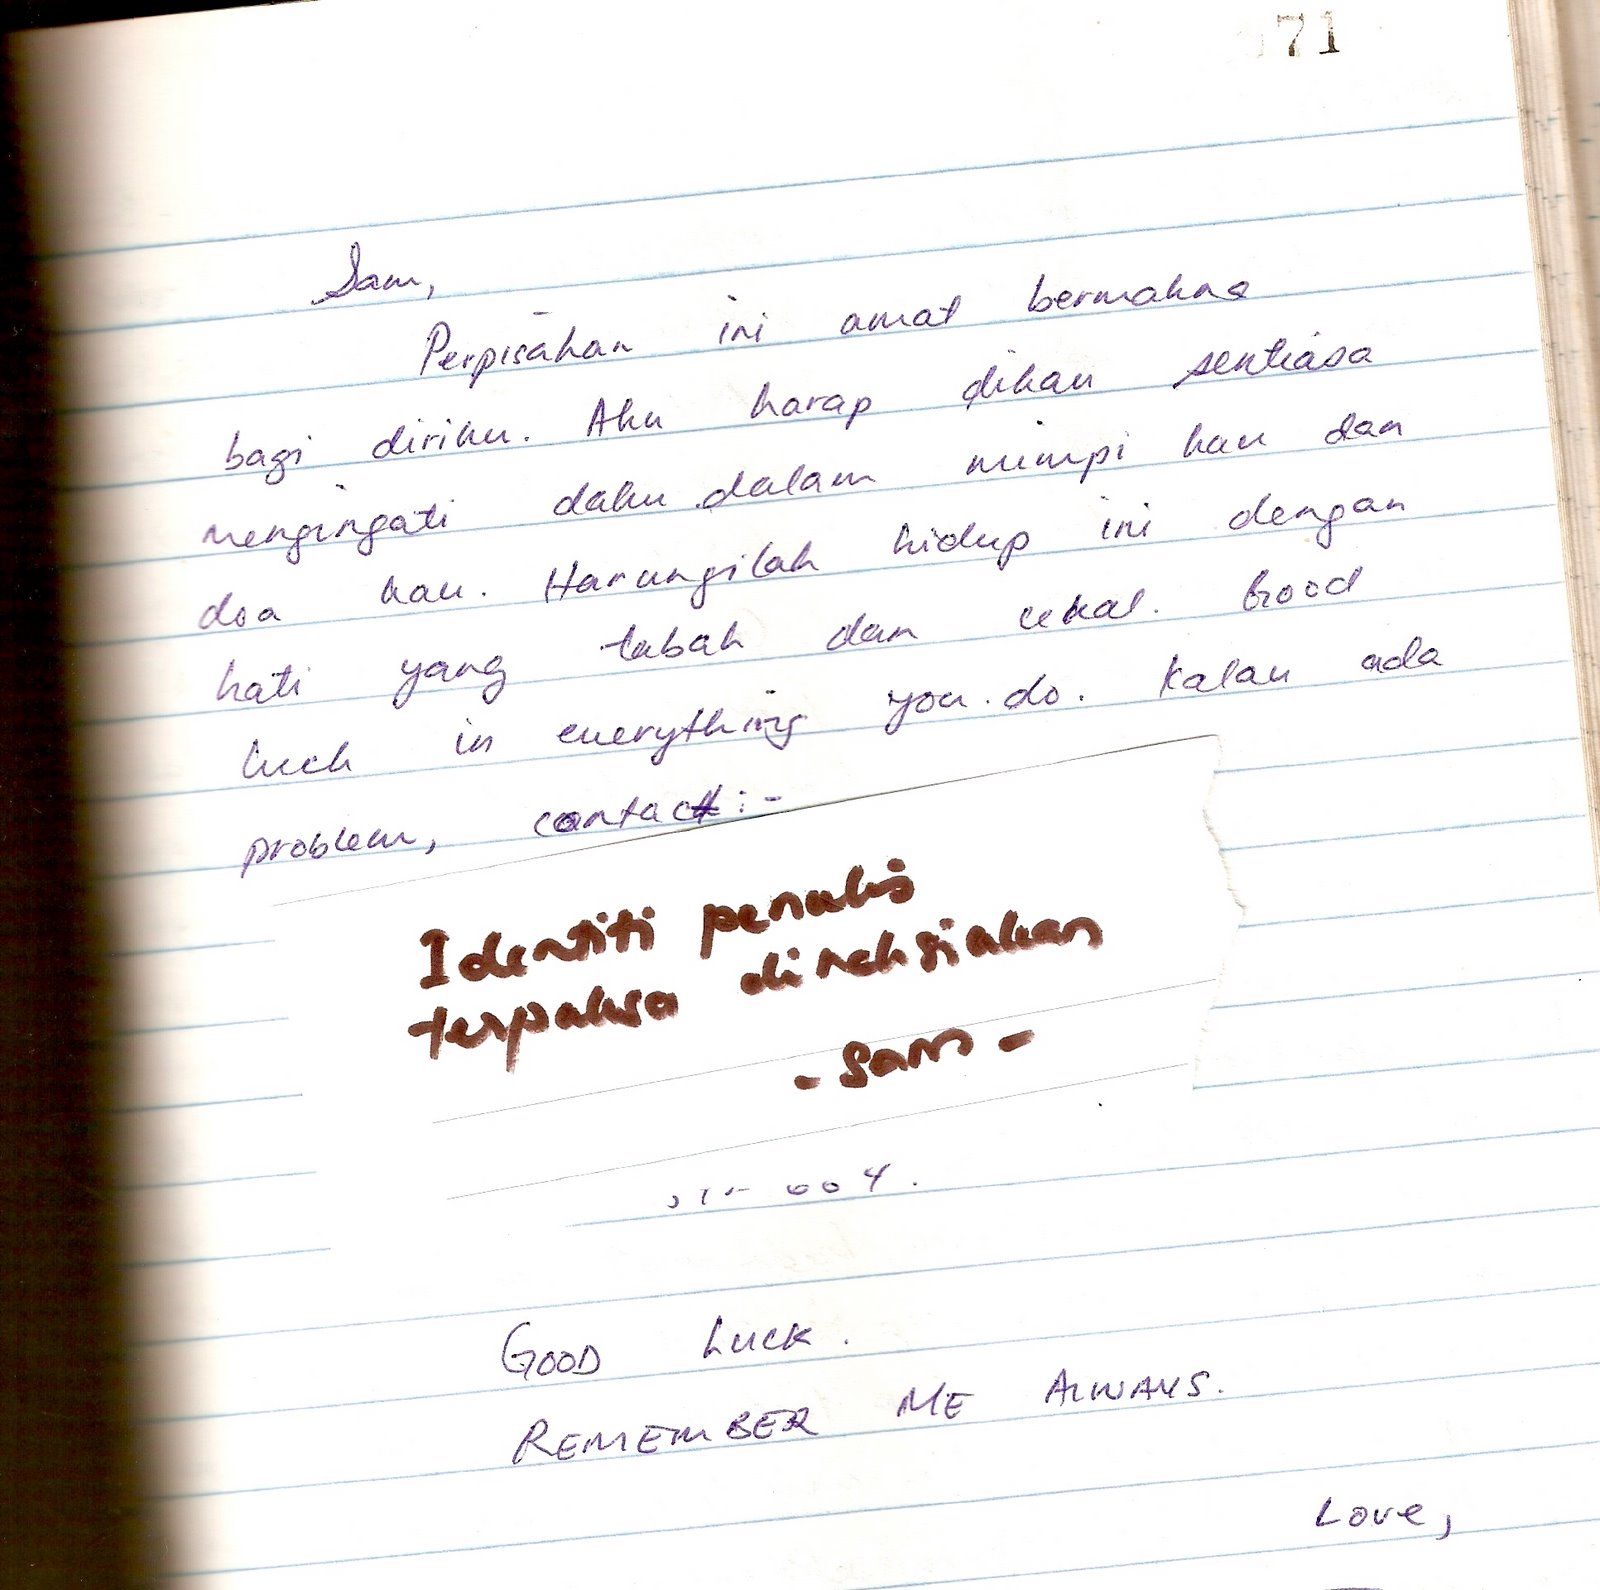 71
Sam,
Perpisahan ini amat bermakna
bagi diriku. Aku harap dikau sentiasa
mengingati daku dalam mimpi kau dan
doa kau. Harungilah hidup ini dengan
hati yang tabah dan cekal. Good
luck in everything you do. Kalau ada
problem, contact:-
Identiti penulis
terpaksa dirahsiakan
- Sam -
GOOD LUCK.
REMEMBER ME ALWAYS.
Love,